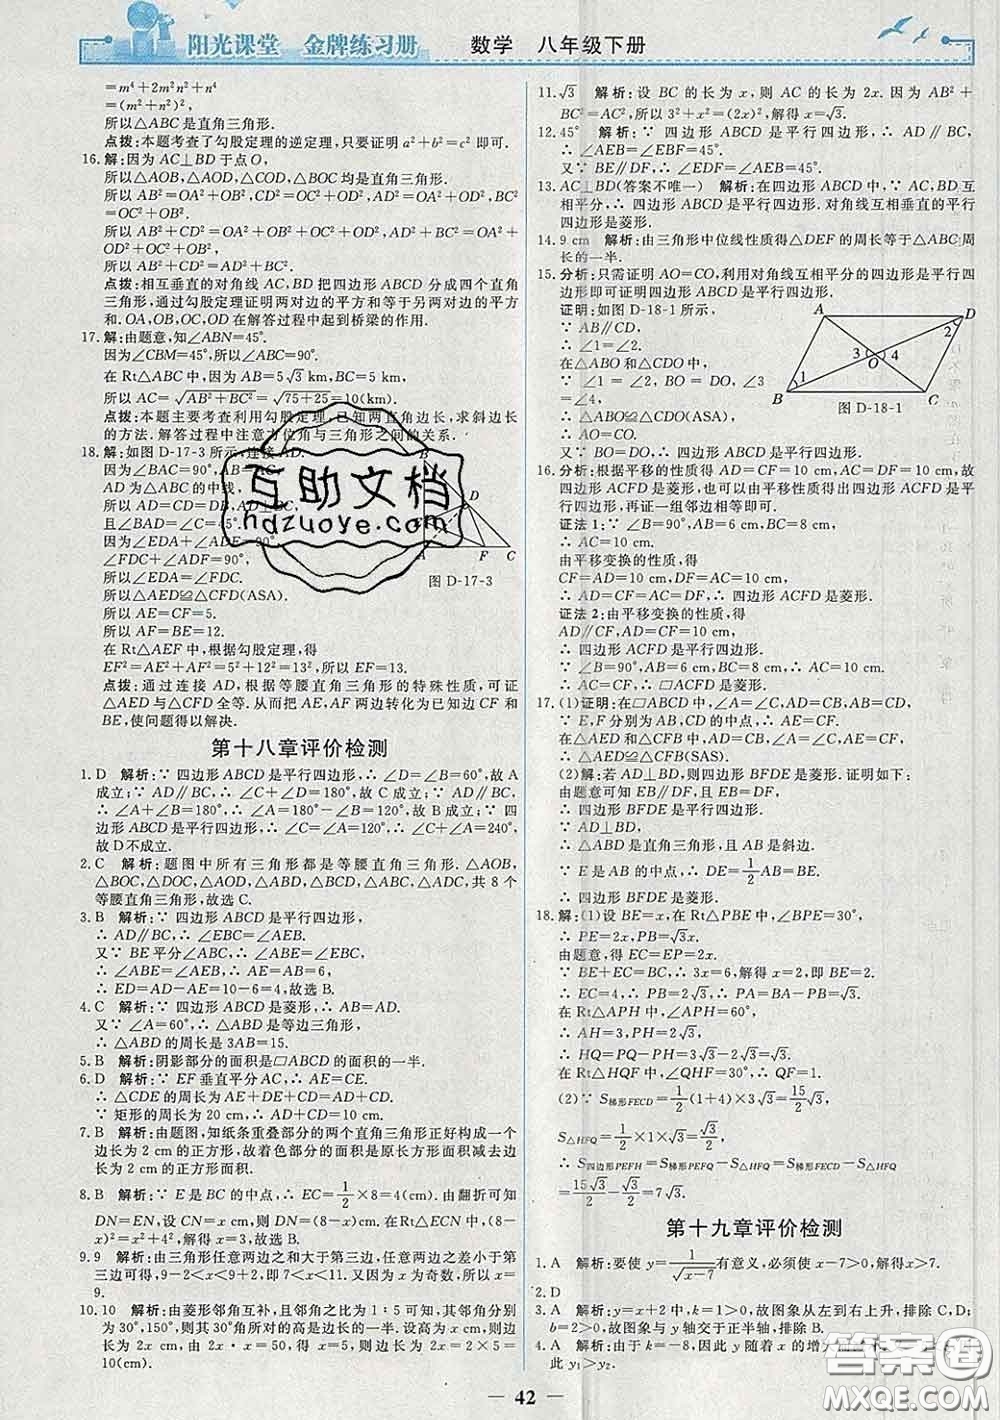 阳光课堂 金牌练习册 数学 八年级下册
=m⁴+2m²n²+n⁴
=(m²+n²)²,
所以△ABC是直角三角形.
点拨:本题考查了勾股定理的逆定理,只要证明a²+b²=c²即可.
16.解:因为AC⊥BD于点O,
所以△AOB,△AOD,△COD,△BOC均是直角三角形.
所以AB²=OA²+OB²,CD²=OC²+OD²,AD²=OA²+OD²,
BC²=OC²+OB².
所以AB²+CD²=OA²+OB²+OC²+OD²,AD²+BC²=OA²+OB²+OC²+OD².
所以AB²+CD²=AD²+BC².
点拨:相互垂直的对角线AC,BD把四边形ABCD分成四个直角
三角形,通过勾股定理证明两对边的平方和等于另两对边的平方
和.OA,OB,OC,OD在解答过程中起到桥梁的作用.
17.解:由题意,知∠ABN=45°.
因为∠CBM=45°,所以∠ABC=90°.
在Rt△ABC中,因为AB=5√3 km,BC=5 km,
所以AC=√(AB²+BC²)=√(75+25)=10(km).
点拨:本题主要考查利用勾股定理,已知两直角边长,求斜边长
的方法.解答过程中注意方位角与三角形之间的关系.
18.解:如图D-17-3所示,连接AD.
因为∠BAC=90°,AB=
AD为△ABC的中线,
所以AD=DC=DB,AD⊥
且∠BAD=∠C=
因为∠EDA+∠ADF=90°,
∠FDC+∠ADF=90°,
所以∠EDA=∠FDC.
所以△AED≌△CFD(ASA).
所以AE=CF=5.
所以AF=BE=12.
在Rt△AEF中,根据勾股定理,得
EF²=AE²+AF²=5²+12²=13²,所以EF=13.
点拨:通过连接AD,根据等腰直角三角形的特殊性质,可证
△AED与△CFD全等.从而把AE,AF两边转化为已知边CF和
BE,使问题得以解决.
D
A F C
图D-17-3
第十八章评价检测
1.D 解析:∵四边形ABCD是平行四边形,∴∠D=∠B=60°,故A
成立;∵AD∥BC,∴∠C+∠D=180°,故C成立;∵AD∥BC,
∴∠A+∠B=180°,∴∠A=180°-∠B=120°,故B成立;∵四
边形ABCD是平行四边形,∴∠C=∠A=120°,∴∠C+∠A=240°,
故D不成立.
2.C 解析:题图中所有三角形都是等腰直角三角形.△AOB,
△BOC,△DOC,△AOD,△ABD,△BCD,△ABC,△ADC,共8个
等腰直角三角形,故选C.
3.B 解析:∵四边形ABCD是平行四边形,
∴AD∥BC,∴∠AEB=∠EBC.
又∵BE平分∠ABC,∴∠ABE=∠EBC,
∴∠ABE=∠AEB,∴AB=AE=6,
∴ED=AD-AE=10-6=4,故选B.
4.C 解析:∵四边形ABCD是菱形,∴AB=AD.
又∵∠A=60°,∴△ABD是等边三角形,
∴△ABD的周长是3AB=15.
5.B 解析:阴影部分的面积是□ABCD的面积的一半.
6.D 解析:∵EF垂直平分AC,∴AE=CE.
∴△CDE的周长为AE+DE+CD=AD+CD.
∵矩形的周长为20 cm,∴AD+CD=10 cm.
7.B 解析:由题图,知纸条重叠部分的两个直角三角形正好构成一个
边长为2 cm的正方形,故着色部分的面积是原长方形面积减去边长
为2 cm的正方形面积.
8.B 解析:∵E是BC的中点,∴EC=1/2×8=4(cm).由翻折可知
DN=EN,设CN=x cm,则DN=(8-x)cm.在Rt△ECN中,(8-
x)²=x²+4²,解得x=3.
9.9 解析:由三角形任意两边之和大于第三边,任意两边之差小于第
三边可得,9-2<x<9+2,即7<x<11.又因为x为奇数,所以x=
9.
10.10 解析:由菱形邻角互补,且邻角之比为1∶5可知,其邻角分别
为30°,150°,则其30°角所对的高是边长的一半.设高为x cm,则
边长为2x cm.由2x·x=50,得x=5,所以边长=2x=2×5=
10(cm).
11.√3 解析:设BC的长为x,则AC的长为2x.因为AB²+
BC²=AC²,所以3²+x²=(2x)²,解得x=√3.
12.45° 解析:∵四边形ABCD是平行四边形,∴AD∥BC,
∴∠AEB=∠EBF=45°.
又∵BE∥DF,∴∠EDF=∠AEB=45°.
13.AC⊥BD(答案不唯一) 解析:在四边形ABCD中,∵AC,BD互
相平分,∴四边形ABCD是平行四边形.对角线互相垂直的平行
四边形是菱形.
14.9 cm 解析:由三角形中位线性质得△DEF的周长等于△ABC周
长的一半.
15.分析:只需证明AO=CO,利用对角线互相平分的四边形是平行四
边形即可证明四边形ABCD是平行四边形.
证明:如图D-18-1所示,
∵AB∥CD,
∴∠1=∠2.
在△ABO和△CDO中,
∵∠1=∠2,BO=DO,∠3
=∠4,
∴△ABO≌△CDO(ASA).
∴AO=CO.
又∵BO=DO,∴四边形ABCD是平行四边形.
A D 2 3 4 O 1 B C
图D-18-1
16.分析:根据平移的性质得AD=CF=10 cm,AC=DF=10 cm,故
四边形ACFD是菱形,也可以由平移性质得出四边形ACFD是平
行四边形,再证一组邻边相等即可.
证法1:∵∠B=90°,AB=6 cm,BC=8 cm,
∴AC=10 cm.
由平移变换的性质,得
CF=AD=10 cm,DF=AC=10 cm,
∴AD=CF=AC=DF=10 cm,∴四边形ACFD是菱形.
证法2:由平移变换的性质,得
AD∥CF,AD=CF=10 cm,
∴四边形ACFD是平行四边形.
∵∠B=90°,AB=6 cm,BC=8 cm,∴AC=10 cm.
∴AC=CF,∴□ACFD是菱形.
17.(1)证明:在□ABCD中,∠A=∠C,AD=CB,AB=CD.
∵E,F分别为AB,CD的中点,∴AE=CF.
在△AED和△CFB中,AD=CB,∠A=∠C,AE=CF,
∴△AED≌△CFB(SAS).
(2)解:若AD⊥BD,则四边形BFDE是菱形.证明如下:
由题意可知EB∥DF,且EB=DF,
∴四边形BFDE是平行四边形.
∵AD⊥BD,
∴△ABD是直角三角形,且AB是斜边.
∵E是AB的中点,∴DE=1/2AB=BE.
∴四边形BFDE是菱形.
18.解:(1)设BE=x,在Rt△PBE中,∠BPE=30°,
∴PE=2x,PB=√3x.
由题意,得EC=EP=2x.
∵BE+EC=BC,∴3x=6,解得x=2,即BE=2.
∴EC=4,∴PB=2√3,∴PA=√3.
在Rt△APH中,∠APH=60°,
∴AH=3,PH=2√3,
∴HQ=PQ-PH=3√3-2√3=√3.
在Rt△HQF中,∠QHF=30°,∴QF=1.
(2)∵S梯形FECD=1/2(1+4)×3√3=15/2√3,
S△HFQ=1/2×1×√3=√3/2,
∴S四边形PEFH=S梯形PEFQ-S△HFQ=S梯形FECD-S△HFQ
=15√3/2-√3/2=7√3.
第十九章评价检测
1.A 解析:要使y=1/√(x-7)有意义,必须使x-7>0.解得x>7.
2.D
3.A 解析:y=x+2中,k=1>0,故图象从左到右上升,排除C,D;
b=2>0,故图象与y轴交于正半轴,排除B.
4.A 解析:由于k=-8,因此y随着x的增大
此y₁>y₂.
42
互助文档
hdzuoye.com
答案圈
MXQE.COM